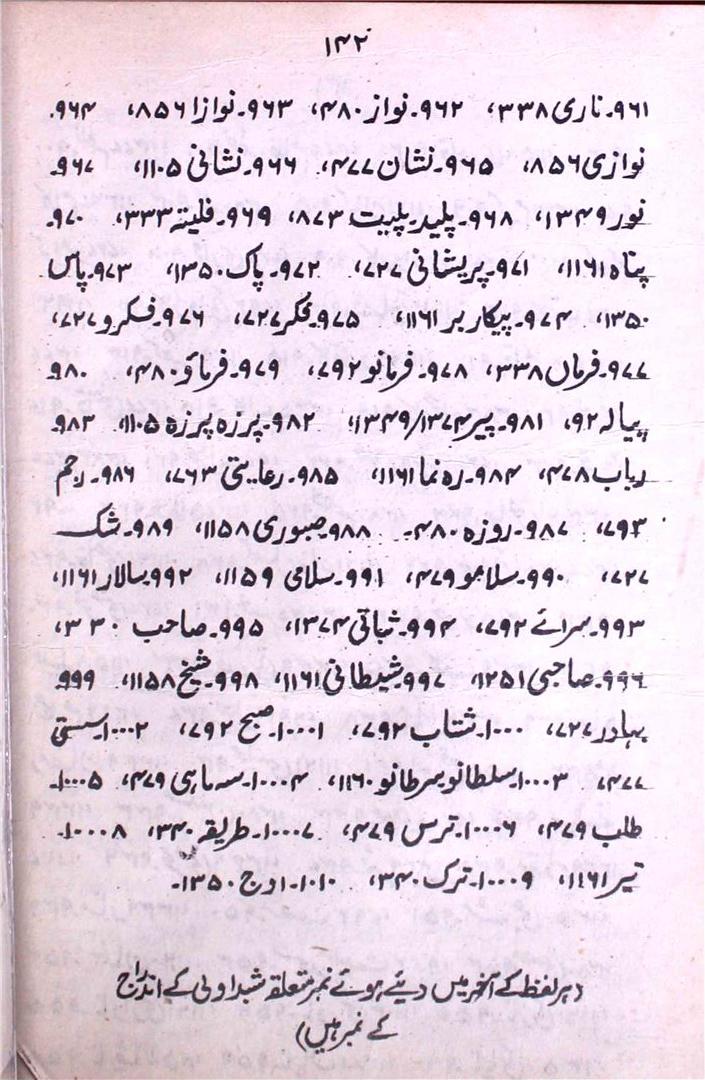 ۱۴۲
۹۶۱۔ناری ۳۳۸، ۹۶۲۔نواز ۴۸۰، ۹۶۳۔نوازا ۸۵۶، ۹۶۴۔
نوازی ۸۵۶، ۹۶۵۔نشان ۴۷۷، ۹۶۶۔نشانی ۱۱۰۵، ۹۶۷۔
نور ۱۳۴۹، ۹۶۸۔پلید۔پلیت ۸۷۳، ۹۶۹۔فلیتہ ۳۳۳، ۹۷۰۔
پناہ ۱۱۶۱، ۹۷۱۔پریشانی ۷۲۷، ۹۷۲۔پاک ۱۳۵۰، ۹۷۳۔پاس
۱۳۵۰، ۹۷۴۔پیکار بر ۱۱۶۱، ۹۷۵۔فکر ۷۲۷، ۹۷۶۔فکرو ۷۲۷،
۹۷۷۔فرماں ۳۳۸، ۹۷۸۔فرمانو ۷۹۲، ۹۷۹۔فرماؤ ۴۸۰، ۹۸۰۔
پیالہ ۹۲، ۹۸۱۔پیر ۱۳۴۹/۱۳۷۴، ۹۸۲۔پرزہ پرزہ ۱۱۰۵، ۹۸۳۔
رباب ۴۷۸، ۹۸۴۔رہ نما ۱۱۶۱، ۹۸۵۔رعایتی ۷۶۳، ۹۸۶۔رحم
۷۹۳، ۹۸۷۔روزہ ۴۸۰۔ ۹۸۸۔صبوری ۱۱۵۸، ۹۸۹۔شک
۷۲۷، ۹۹۰۔سلامو ۴۷۹، ۹۹۱۔سلامی ۱۱۵۹، ۹۹۲۔سالار ۱۱۶۱،
۹۹۳۔سرائے ۷۹۲، ۹۹۴۔ثباتی ۱۳۷۴، ۹۹۵۔صاحب ۳۳۰،
۹۹۶۔صاحبی ۱۲۵۱، ۹۹۷۔شیطانی ۱۱۶۱، ۹۹۸۔شیخ ۱۱۵۸، ۹۹۹۔
بہادر ۷۲۷، ۱۰۰۰۔شتاب ۷۹۲، ۱۰۰۱۔صبح ۷۹۲، ۱۰۰۲۔سستی
۴۷۷، ۱۰۰۳۔سلطانو۔سرطانو ۱۱۶۰، ۱۰۰۴۔سہ ماہی ۴۷۹، ۱۰۰۵۔
طلب ۴۷۹، ۱۰۰۶۔ترس ۴۷۹، ۱۰۰۷۔طریقہ ۳۴۰، ۱۰۰۸۔
تیر ۱۱۶۱، ۱۰۰۹۔ترک ۳۴۰، ۱۰۱۰۔اوج ۱۳۵۰۔
(ہر لفظ کے آخر میں دیئے ہوئے نمبر متعلقہ شبداولی کے اندراج
کے نمبر ہیں)